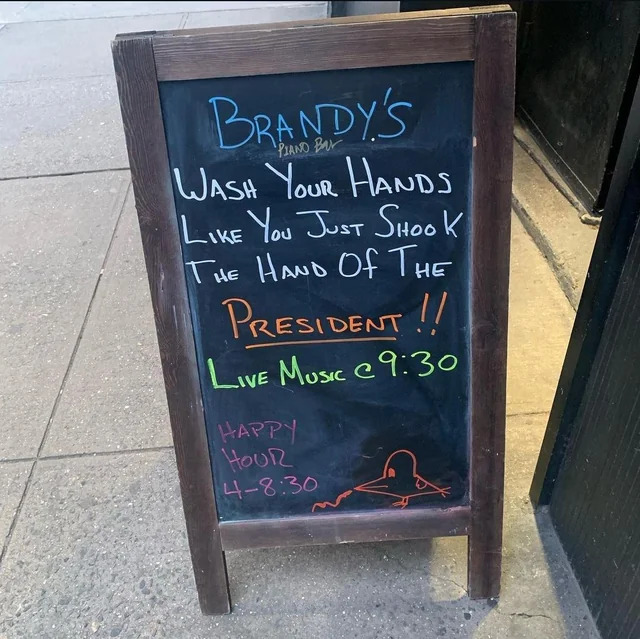 BRANDY'S
PIANO BAR
WASH YOUR HANDS
LIKE YOU JUST SHOOK
THE HAND OF THE
PRESIDENT!!
LIVE MUSIC @ 9:30
HAPPY
HOUR
4-8:30